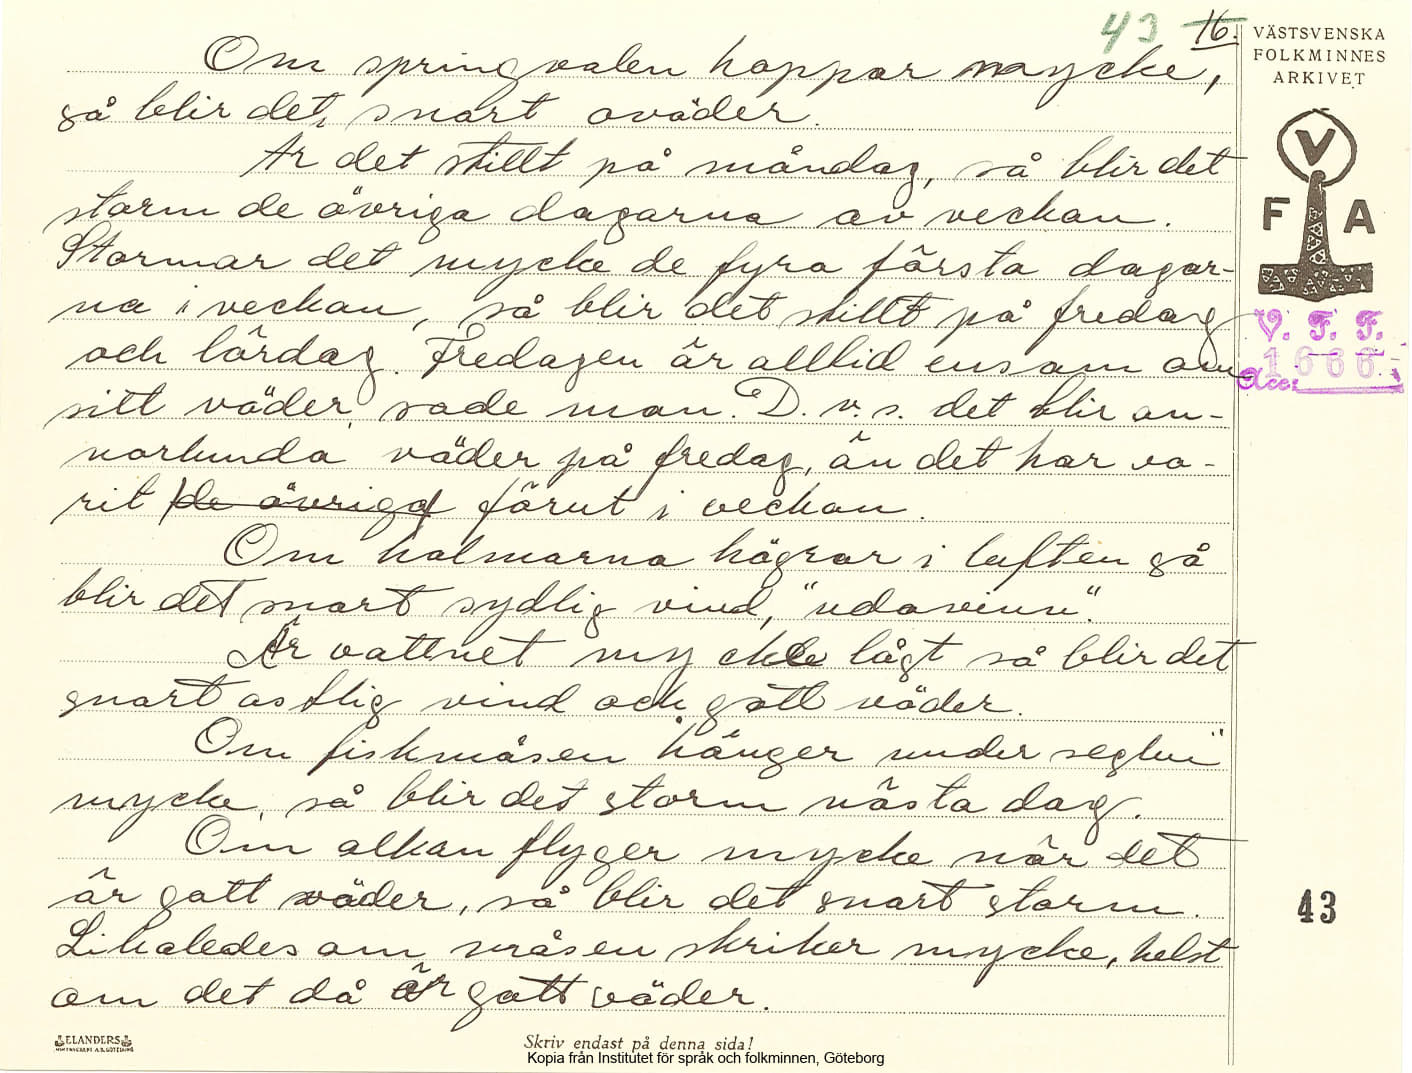 43 16.
VÄSTSVENSKA
FOLKMINNES
ARKIVET
V
F A
V. F. F.
1666
Acc.
Om springvalen hoppar mycke,
så blir det snart oväder.
Är det stillt på måndag, så blir det
storm de övriga dagarna av veckan.
Stormar det mycke de fyra första dagar-
na i veckan, så blir det stillt på fredag
och lördag. Fredagen är alltid ensam om
sitt väder, sade man. D. v. s. det blir an-
norlunda väder på fredag, än det har va-
rit de övriga förut i veckan.
Om holmarna hägrar i luften så
blir det snart sydlig vind, "udavinn".
Är vattnet mycke lågt så blir det
snart ostlig vind och gott väder.
Om fiskmåsen "hänger under seglen"
mycke, så blir det storm nästa dag.
Om alkan flyger mycke när det
är gott väder, så blir det snart storm.
Likaledes om måsen skriker mycke, helst
om det då är gott väder.
43
ELANDERS
Skriv endast på denna sida!
Kopia från Institutet för språk och folkminnen, Göteborg